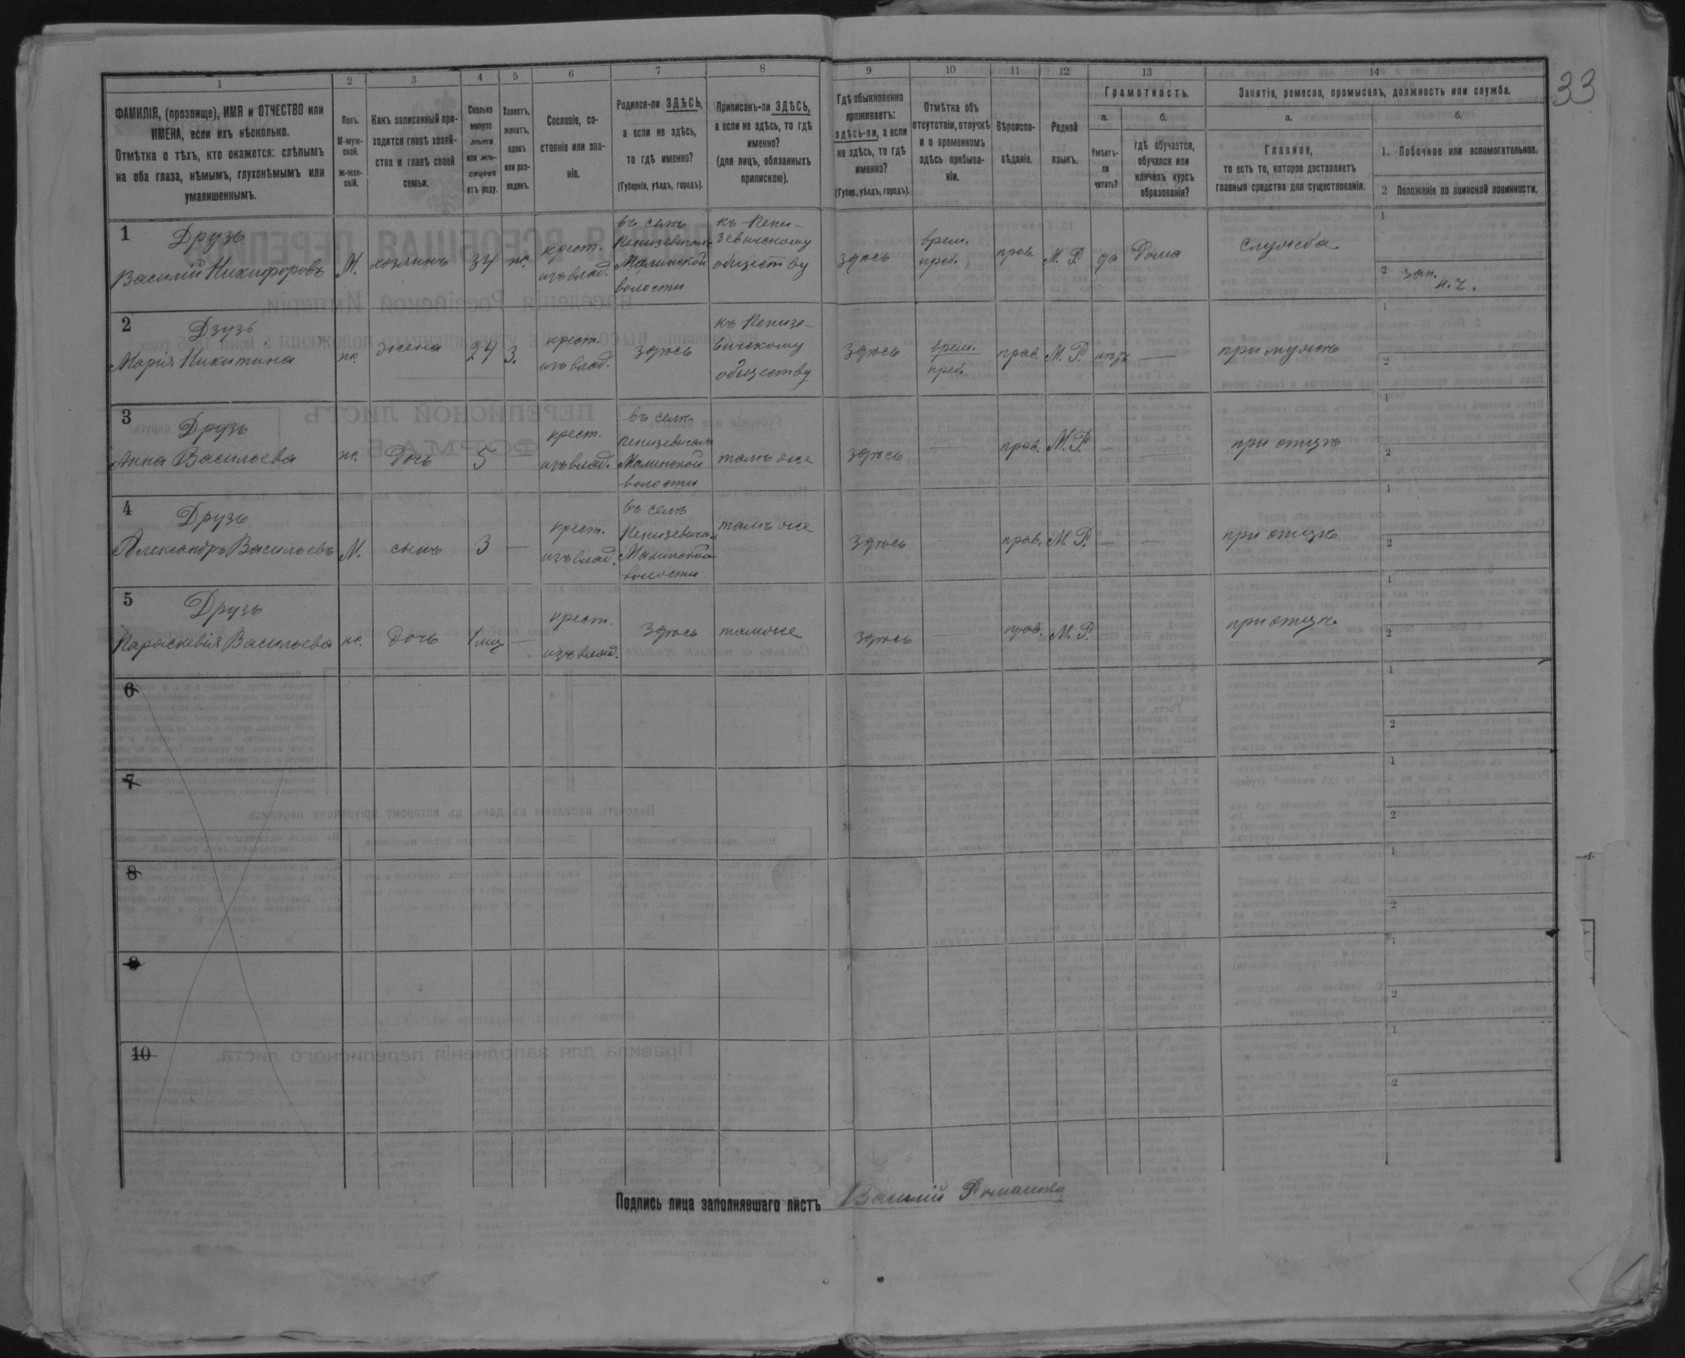 33
1 2 3 4 5 6 7 8 9 10 11 12 13 14
ФАМИЛІЯ, (прозвище), ИМЯ и ОТЧЕСТВО или
ИМЕНА, если ихъ нѣсколько.
Отмѣтка о тѣхъ, кто окажется: слѣпымъ
на оба глаза, нѣмымъ, глухонѣмымъ или
умалишеннымъ.
Полъ.
М-муж-
ской.
Ж-жен-
скій.
Какъ записанный при-
ходится главѣ хозяй-
ства и главѣ своей
семьи.
Сколько
минуло
лѣтъ
или мѣ-
сяцевъ
отъ роду.
Холостъ,
женатъ,
вдовъ
или раз-
веденъ.
Сословіе, со-
стояніе или зва-
ніе.
Родился-ли ЗДѢСЬ,
а если не здѣсь,
то гдѣ именно?
(Губернія, уѣздъ, городъ).
Приписанъ-ли ЗДѢСЬ,
а если не здѣсь, то гдѣ
именно?
(для лицъ, обязанныхъ
припискою).
Гдѣ обыкновенно
проживаетъ:
здѣсь-ли, а если
не здѣсь, то гдѣ
именно?
(Губерн., уѣздъ, городъ).
Отмѣтка объ
отсутствіи, отлучкѣ
и о временномъ
здѣсь пребыва-
ніи.
Вѣроиспо-
вѣданіе.
Родной
языкъ.
Грамотность.
а.
Умѣетъ-
ли
читать?
б.
гдѣ обучается,
обучался или
кончилъ курсъ
образованія?
Занятіе, ремесло, промыселъ, должность или служба.
а.
Главное,
то есть то, которое доставляетъ
главныя средства для существованія.
б.
1. Побочное или вспомогательное.
2 Положеніе по воинской повинности.
1 Друзь
Василій Никифоровъ
М.
хозяинъ
34
ж.
крест.
изъ влад.
въ селѣ
Малинской
волости
обществу
здѣсь
врем.
преб.
прав.
М. Р.
да
Дома
Служба
1
2 зап.
н.ч.
2
Марія Никитина
ж.
жена
24
З.
крест.
изъ влад.
здѣсь
обществу
здѣсь
врем.
преб.
прав.
М. Р.
нѣтъ
—
при мужѣ
1
2
3 Друзь
Анна Васильева
ж.
Дочь
5
крест.
изъ влад.
въ селѣ
Малинской
волости
тамъ же
здѣсь
прав.
М. Р.
при отцѣ
1
2
4 Друзь
Александръ Васильевъ
М.
сынъ
3
—
крест.
изъ влад.
въ селѣ
Малинской
волости
тамъ же
здѣсь
прав.
М. Р.
при отцѣ
1
2
5 Друзь
Параскевія Васильева
ж.
дочь
1 мц.
—
крест.
изъ влад.
здѣсь
тамже
здѣсь
прав.
М. Р.
при отцѣ
1
2
6
1
2
7
1
2
8
1
2
9
1
2
10
1
2
Подпись лица заполнявшаго листъ Василій Романко